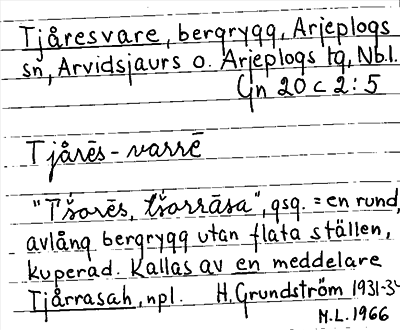 Tjåresvare, bergrygg, Arjeplogs
sn, Arvidsjaurs o. Arjeplogs tg, Nb.l.
Gn 20 c 2:5
Tjårēs-varrē
"Tšorēs, tšorrāsa", gsg. = en rund,
avlång bergrygg utan flata ställen,
kuperad. Kallas av en meddelare
Tjårrasah, npl. H. Grundström 1931-34
M.L. 1966